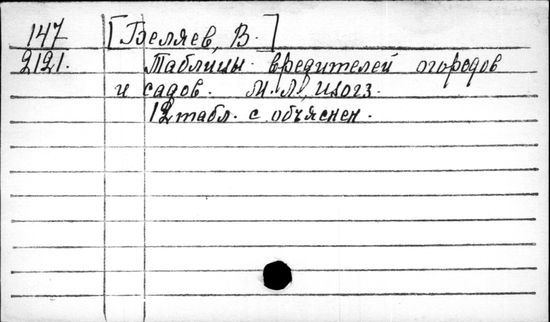 147 [Беляев, В.]
2121. Таблицы вредителей огородов
и садов. М.Л, Изогз.
12 табл. с объяснен.